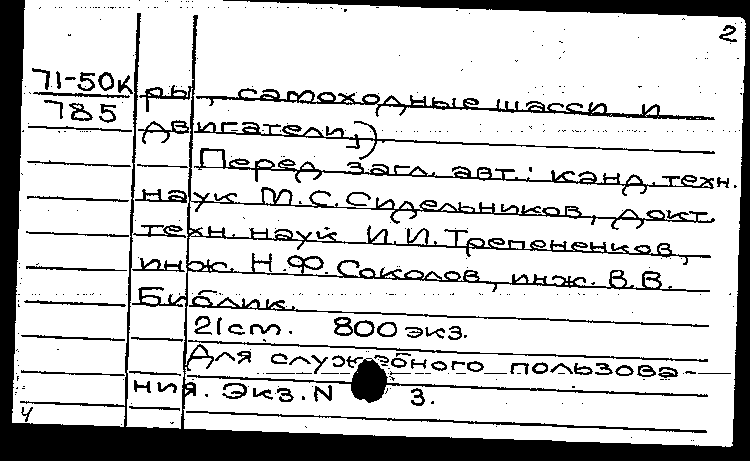 2
71-50к ры, самоходные шасси и
785 двигатели).
Перед загл. авт.: канд. техн.
наук М.С.Сидельников, докт.
техн. наук И.И.Трепененков,
инж. Н.Ф.Соколов, инж. В.В.
Библик.
21cm. 800 экз.
Для служебного пользова-
ния. Экз.N 3.
4